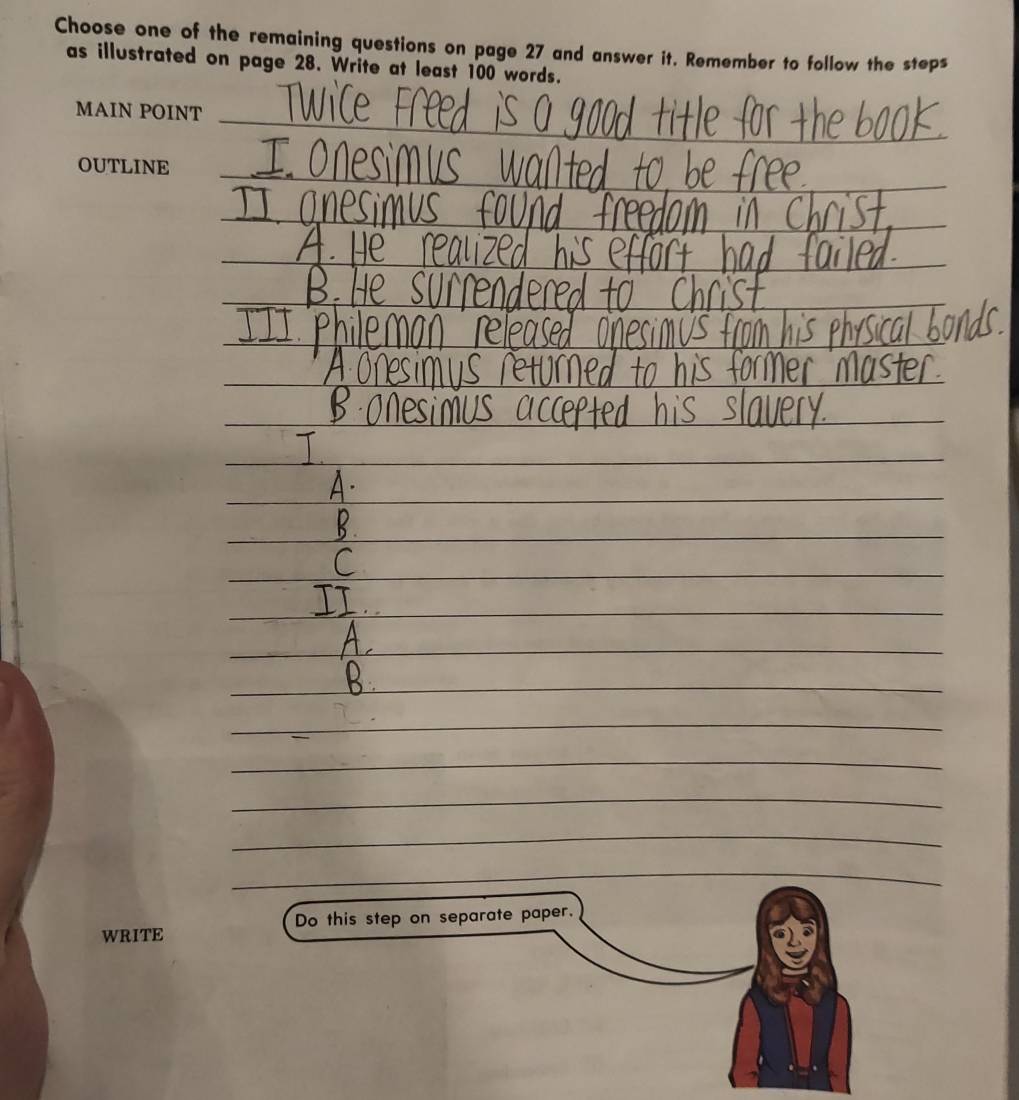 Choose one of the remaining questions on page 27 and answer it. Remember to follow the steps
as illustrated on page 28. Write at least 100 words.
MAIN POINT Twice Freed is a good title for the book.
OUTLINE I. Onesimus wanted to be free.
II Onesimus found freedom in Christ.
A. He realized his effort had failed.
B. He surrendered to Christ
III. Philemon released Onesimus from his physical bonds.
A. Onesimus returned to his former master.
B. Onesimus accepted his slavery.
I.
A.
B.
C
II..
A.
B.
Do this step on separate paper.
WRITE